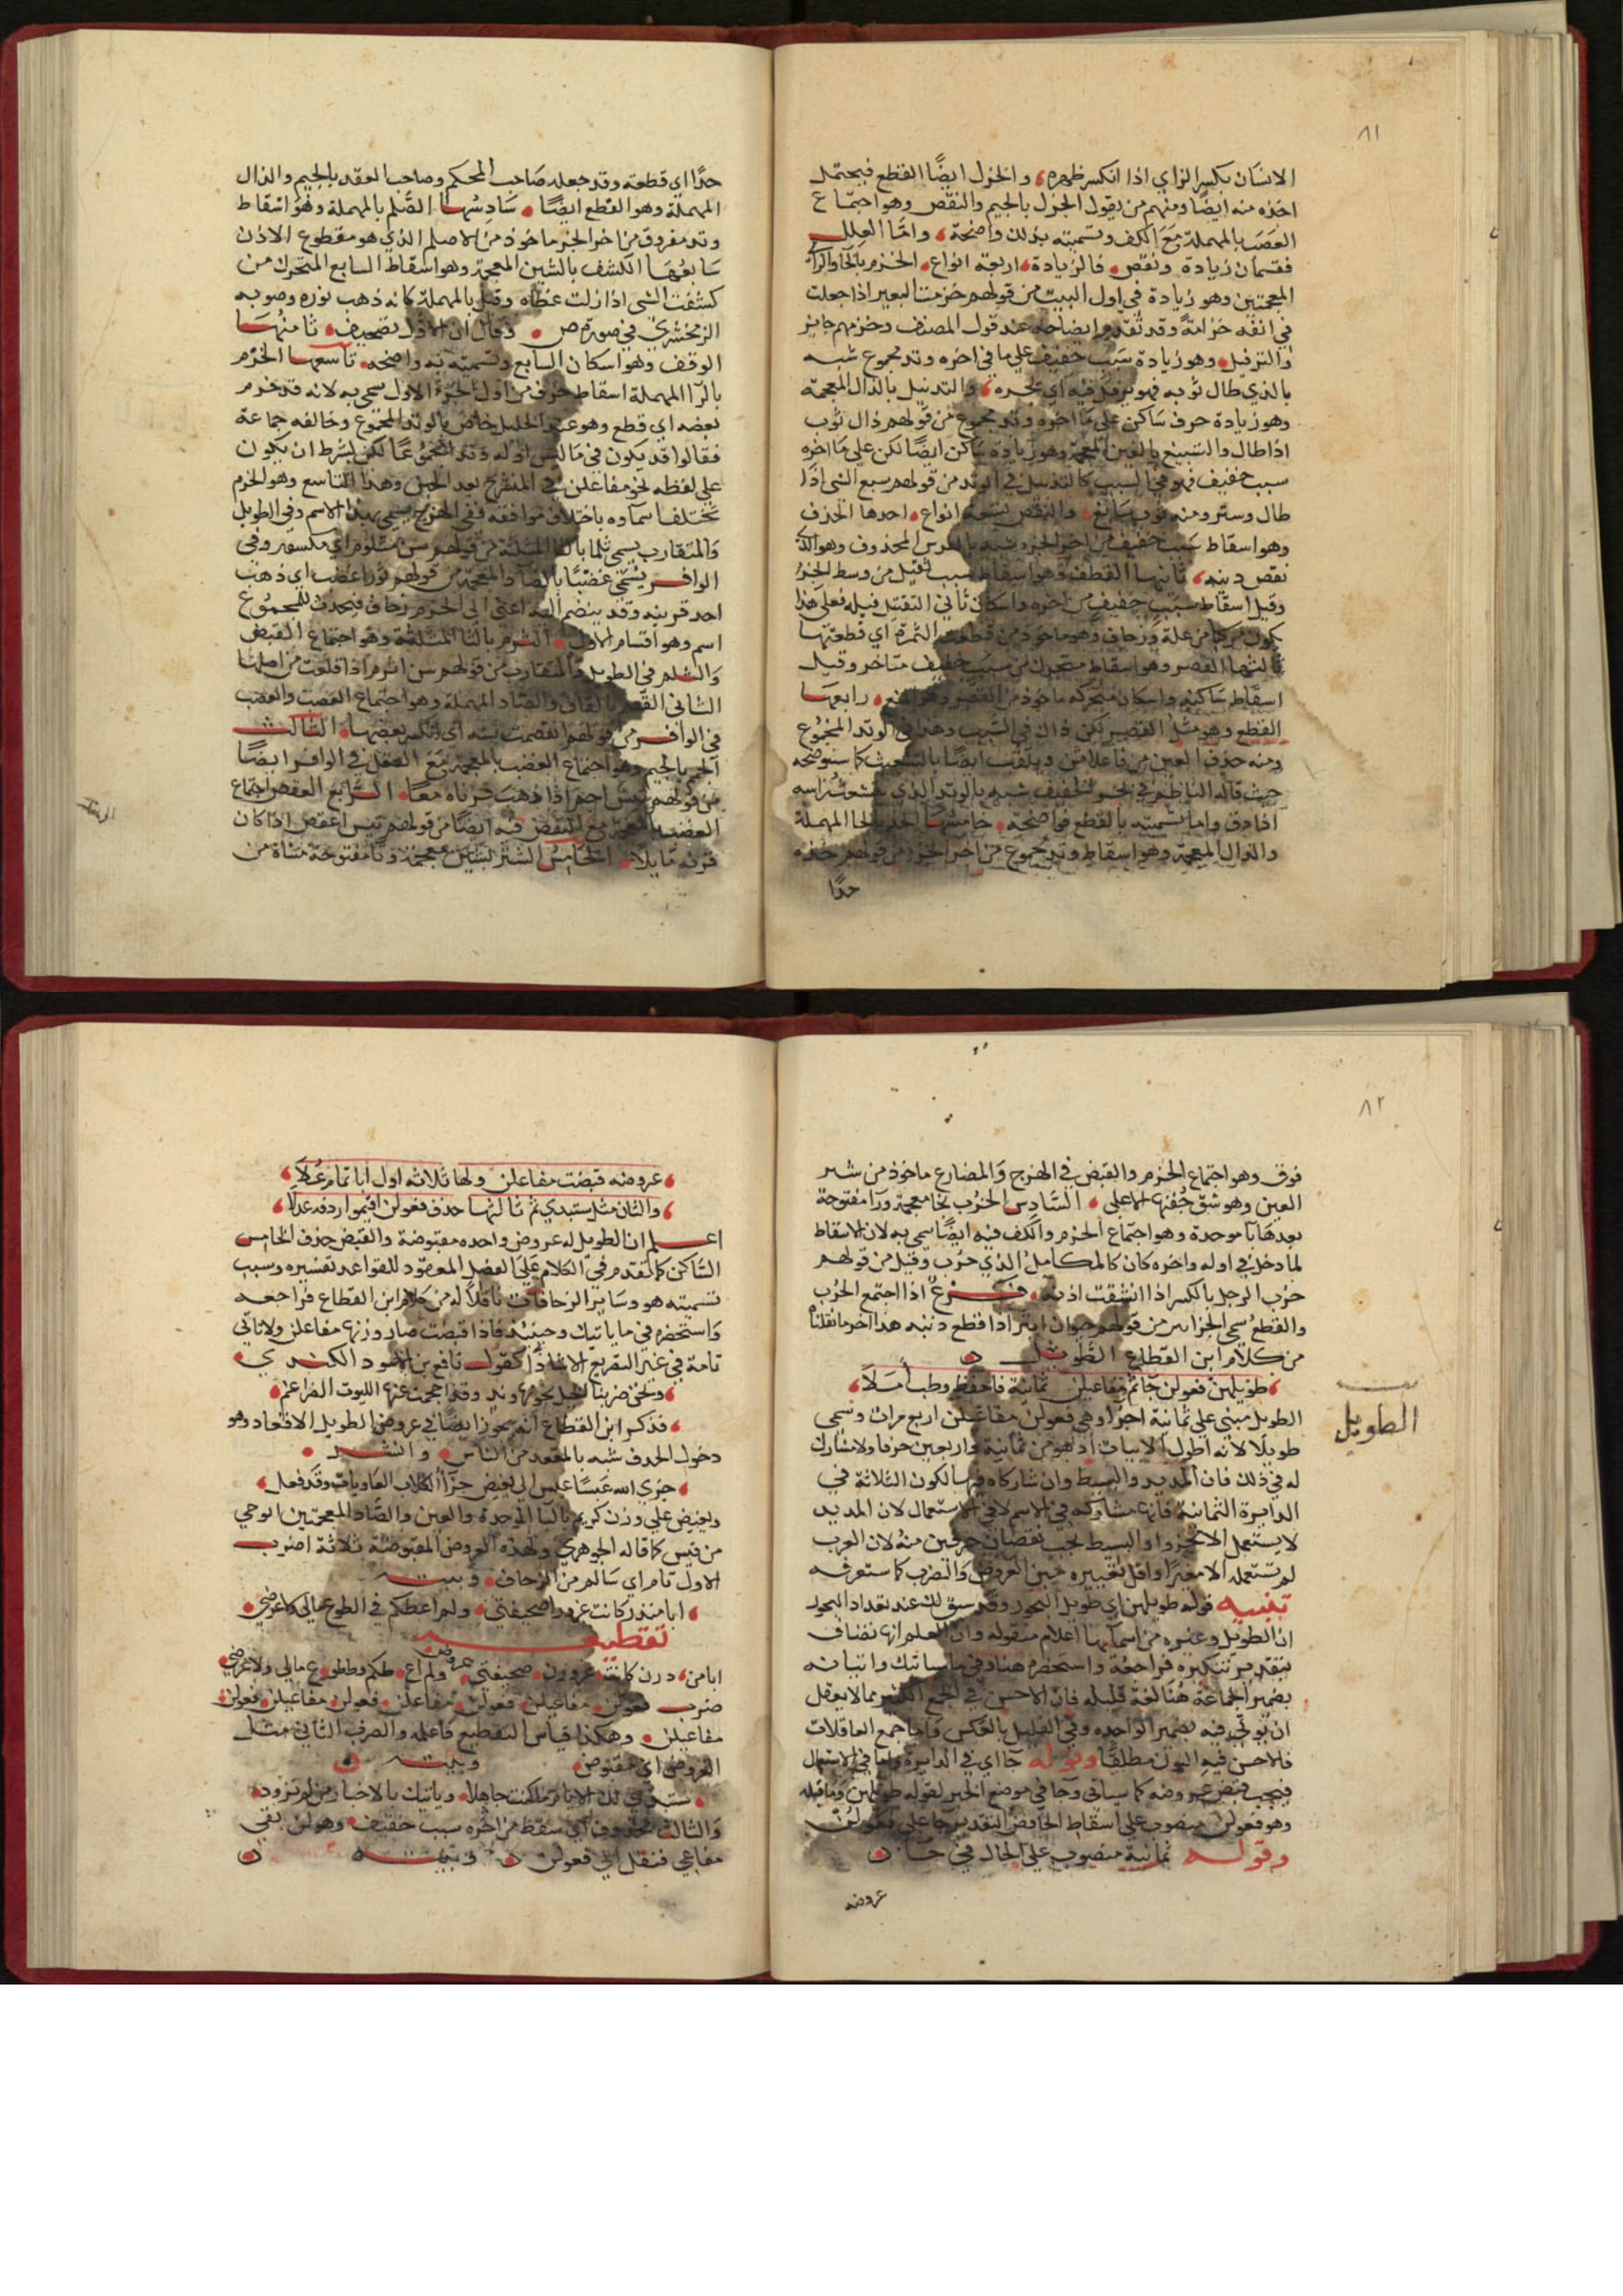 ٨١
الانسان بكسر الزاي اذا انكسر ظهره والخزل ايضًا القطع فيحتمل
اخذه منه ايضًا ومنهم من يقول الجزل بالجيم والنقص وهو اجتماع
العصب بالمهملة مع الكف وتسميته بذلك واضحة واما العلل
فقسمان زيادة ونقص فالزيادة اربعة انواع الخزم بالخا والزاي
المعجمتين وهو زيادة في اول البيت من قولهم خزمت البعير اذا جعلت
في انفه خزامة وقد تقدم ايضاحه عند قول المصنف وخزمهم جايز
والترفيل وهو زيادة سبب خفيف على ما في اخره وتد مجموع شبه
بالذي طال ثوبه فهو يرفل فيه اي يجره والتذييل بالذال المعجمة
وهو زيادة حرف ساكن على ما اخره وتد مجموع من قولهم ذال ثوب
اذا طال والتسبيغ بالغين المعجمة وهو زيادة ساكن ايضًا لكن على ما اخره
سبب خفيف فهو في السبب كالتذييل في الوتد من قولهم سبغ الشي اذا
طال وستر ومنه ثوب سابغ والنقص تسعة انواع احدها الحذف
وهو اسقاط سبب خفيف من اخر الجزء شبه بالفرس المحذوف وهو الذي
نقص ذنبه ثانيها القطف وهو اسقاط سبب ثقيل من وسط الجزء
وقيل اسقاط سبب خفيف من اخره واسكان ثاني الثقيل قبله فعلى هذا
يكون مركبا من علة وزحاف وهو ماخوذ من قطفت الثمرة اي قطعتها
ثالثها القصر وهو اسقاط متحرك من سبب خفيف متاخر وقيل
اسقاط ساكنه واسكان متحركه ماخوذ من القصر وهو المنع رابعها
القطع وهو مثل القصر لكن ذاك في السبب وهذا في الوتد المجموع
ومنه حذف العين من فاعلاتن ويلقب ايضًا بالتشعيث كما سنوضحه
حيث قاله الناظم في بحر الخفيف شبه بالوتد الذي يتشعث راسه
اذا دق واما تسميته بالقطع فواضحة خامسها الحذ بالحا المهملة
والذال المعجمة وهو اسقاط وتد مجموع من اخر الجزء من قولهم حذه
حذًا
حذًا اي قطعه وقد جعله صاحب المحكم وصاحب العقد بالجيم والدال
المهملة وهو القطع ايضًا سادسها الصلم بالمهملة وهو اسقاط
وتد مفروق من اخر الجزء ماخوذ من الاصلم الذي هو مقطوع الاذن
سابعها الكشف بالشين المعجمة وهو اسقاط السابع المتحرك من
كشفت الشي اذا ازلت غطاه وقيل بالمهملة كانه ذهب نوره وصوبه
الزمخشري في صورة ص وقال ان الاول تصحيف ثامنها
الوقف وهو اسكان السابع وتسميته به واضحه تاسعها الخرم
بالرا المهملة اسقاط حرف من اول الجزء الاول سمي به لانه قد خرم
بعضه اي قطع وهو عند الخليل خاص بالوتد المجموع وخالفه جماعة
فقالوا قد يكون في ما ليس اوله وتد مجموعًا لكن بشرط ان يكون
على لفظه نحو مفاعلن في المنسرح بعد الخبن وهذا التاسع وهو الخرم
تختلف اسماوه باختلاف مواقعه ففي الهزج يسمى بهذا الاسم وفي الطويل
والمتقارب يسمى ثلما بالثا المثلثة من قولهم سن مثلوم اي مكسور وفي
الوافر يسمى عضبًا بالضاد المعجمة من قولهم ثور اعضب اي ذهب
احد قرنيه وقد ينضم اليه اعني الى الخرم زحاف فيحدث للمجموع
اسم وهو اقسام الاول الثرم بالثا المثلثة وهو اجتماع القبض
والثلم في الطويل والمتقارب من قولهم سن اثرم اذا قلعت من اصلها
الثاني القصم بالقاف والصاد المهملة وهو اجتماع العصب والعضب
في الوافر من قولهم انقصمت سنه اي انكسر بعضها الثالث
الجم بالجيم وهو اجتماع العضب بالمعجمة مع العقل في الوافر ايضًا
من قولهم تيس اجم اذا ذهب قرناه معًا الرابع العقص اجتماع
العضب بالمعجمة مع النقص فيه ايضًا من قولهم تيس اعقص اذا كان
قرنه مايلًا الخامس الشتر بشين معجمة وتا مفتوحة مثناة من
٨٢
فوق وهو اجتماع الخرم والقبض في الهزج والمضارع ماخوذ من شتر
العين وهو شق جفنها الاعلى السادس الخرب بخا معجمة ورا مفتوحة
بعدها با موحدة وهو اجتماع الخرم والكف فيه ايضًا سمي به لان الاسقاط
لما دخل في اوله واخره كان كالمكامل الذي خرب وقيل من قولهم
خرب الرجل بالكسر اذا انشقت اذنه فرع اذا اجتمع الخرب
والقطع سمي الجزء ابتر من قولهم حيوان ابتر اذا قطع ذنبه هذا اخر ما نقلناه
من كلام ابن القطاع الطويل
طويلهن فعولن جاثم مفاعيلن ثمانية فاحفظ وطب املا
الطويل
الطويل مبني على ثمانية اجزا وهي فعولن مفاعيلن اربع مرات وسمي
طويلًا لانه اطول الابيات اذ هو من ثمانية واربعين حرفا ولا مشارك
له في ذلك فان المديد والبسيط وان شاركاه فيها لكون الثلاثة في
الدايرة الثمانية فانها مشاركة في الاسم لا في الاستعمال لان المديد
لا يستعمل الا مجزوا والبسيط يجب نقصان حرفين منه لان العرب
لم تستعمله الا مغيرًا واقل تغييره خبن العروض والضرب كما ستعرفه
تنبيه قوله طويلهن اي طويل البحور وقد سبق لك عند تعداد البحور
ان الطويل وغيره من اسمايها اعلام منقوله وان العلم انما يضاف
بتقدير تنكيره فراجعه واستحضره هنا وفي ما سياتيك واتيانه
بضمير الجماعة هنا لغة قليله فان الاحسن في الجمع الكثير مما لا يعقل
ان يوتى فيه بضمير الواحده وفي القليل بالعكس واما جمع العاقلات
فالاحسن فيه النون مطلقًا وقوله جا اي في الدايرة واما في الاستعمال
فيجب قبض عروضه كما سياتي وجا في موضع الخبر لقوله طويلهن وما قبله
وهو فعولن منصوب على اسقاط الخافض التقدير جا على فعولن
وقوله ثمانية منصوب على الحال في جا
عروضه
عروضه قبضت مفاعلن ولها ثلاثة اول ابا تمام علا
والثان مثل ستبدي ثم ثالثها حذف فعولن اقيموا ردفه عدلا
اعلم ان الطويل له عروض واحده مقبوضة والقبض حذف الخامس
الساكن كما تقدم في الكلام على الفصل المعقود للقواعد تفسيره وسبب
تسميته هو وساير الزحافات ناقلًا له من كلام ابن القطاع فراجعه
واستحضره في ما ياتيك وحينئذ فاذا قبضت صار وزنها مفاعلن ولا تاتي
تامة في غير التصريع الا شاذًا كقول نافع بن الاسود الكندي
فذكر ابن القطاع انه يجوز ايضًا في عروض الطويل الاقعاد وهو
دخول الحذف شبه بالمقعد من الناس وانشد
جزى الله عبسًا عبس ال بغيض جزا الكلاب العاويات وقد فعل
وبغيض على وزن كريم بالبا الموحدة والغين والضاد المعجمتين ابو حي
من قيس كما قاله الجوهري ولهذه العروض المقبوضة ثلاثة اضرب
الاول تام اي سالم من الزحاف وبيته
ابا منذر كانت غرورا صحيفتي ولم اعطكم في الطوع مالي ولا عرضي
تقطيعه
ابامن درن كانت غرورن صحيفتي عروض ولم اع طكم فططو ع مالي ولا عرضي
ضرب فعولن مفاعيلن فعولن مفاعلن فعولن مفاعيلن فعولن
مفاعيلن وهكذا قياس التقطيع فاعلمه والضرب الثاني مثل
العروض اي مقبوض وبيته
ستبدي لك الايام ما كنت جاهلًا وياتيك بالاخبار من لم تزود
والثالث محذوف اي سقط من اخره سبب خفيف وهو لن بقي
مفاعي فنقل الى فعولن وبيته